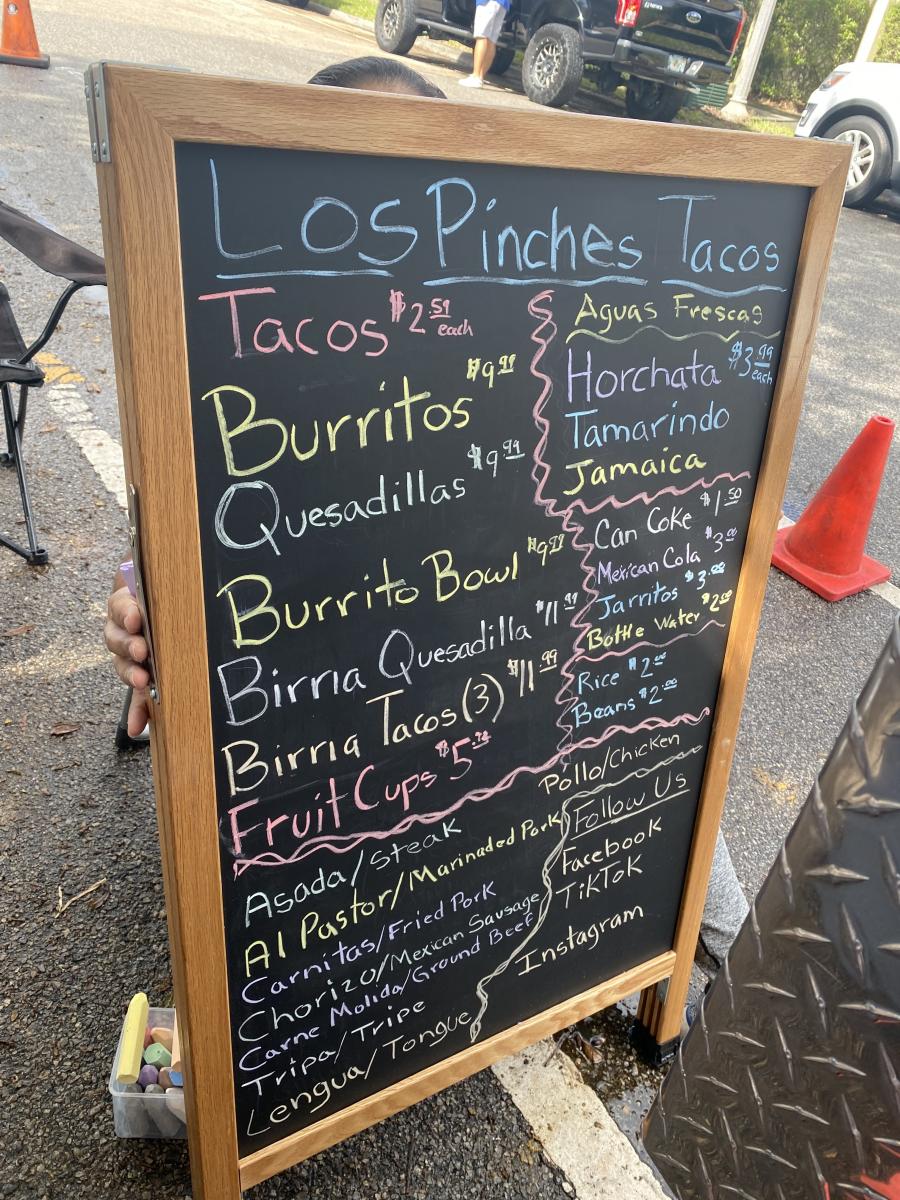 Los Pinches Tacos
Tacos $2.59 each
Burritos $9.99
Quesadillas $9.99
Burrito Bowl $9.99
Birria Quesadilla $11.99
Birria Tacos (3) $11.99
Fruit Cups
Aguas Frescas
Horchata $3.99 each
Tamarindo
Jamaica
Can Coke $1.50
Mexican Cola $3.00
Jarritos $3.00
Bottle Water $2.00
Rice $2.00
Beans $2.00
Pollo/Chicken
Asada/Steak
Al Pastor/Marinaded Pork
Carnitas/Fried Pork
Chorizo/Mexican Sausage
Carne Molida/Ground Beef
Tripa/Tripe
Lengua/Tongue
Follow Us
Facebook
TikTok
Instagram